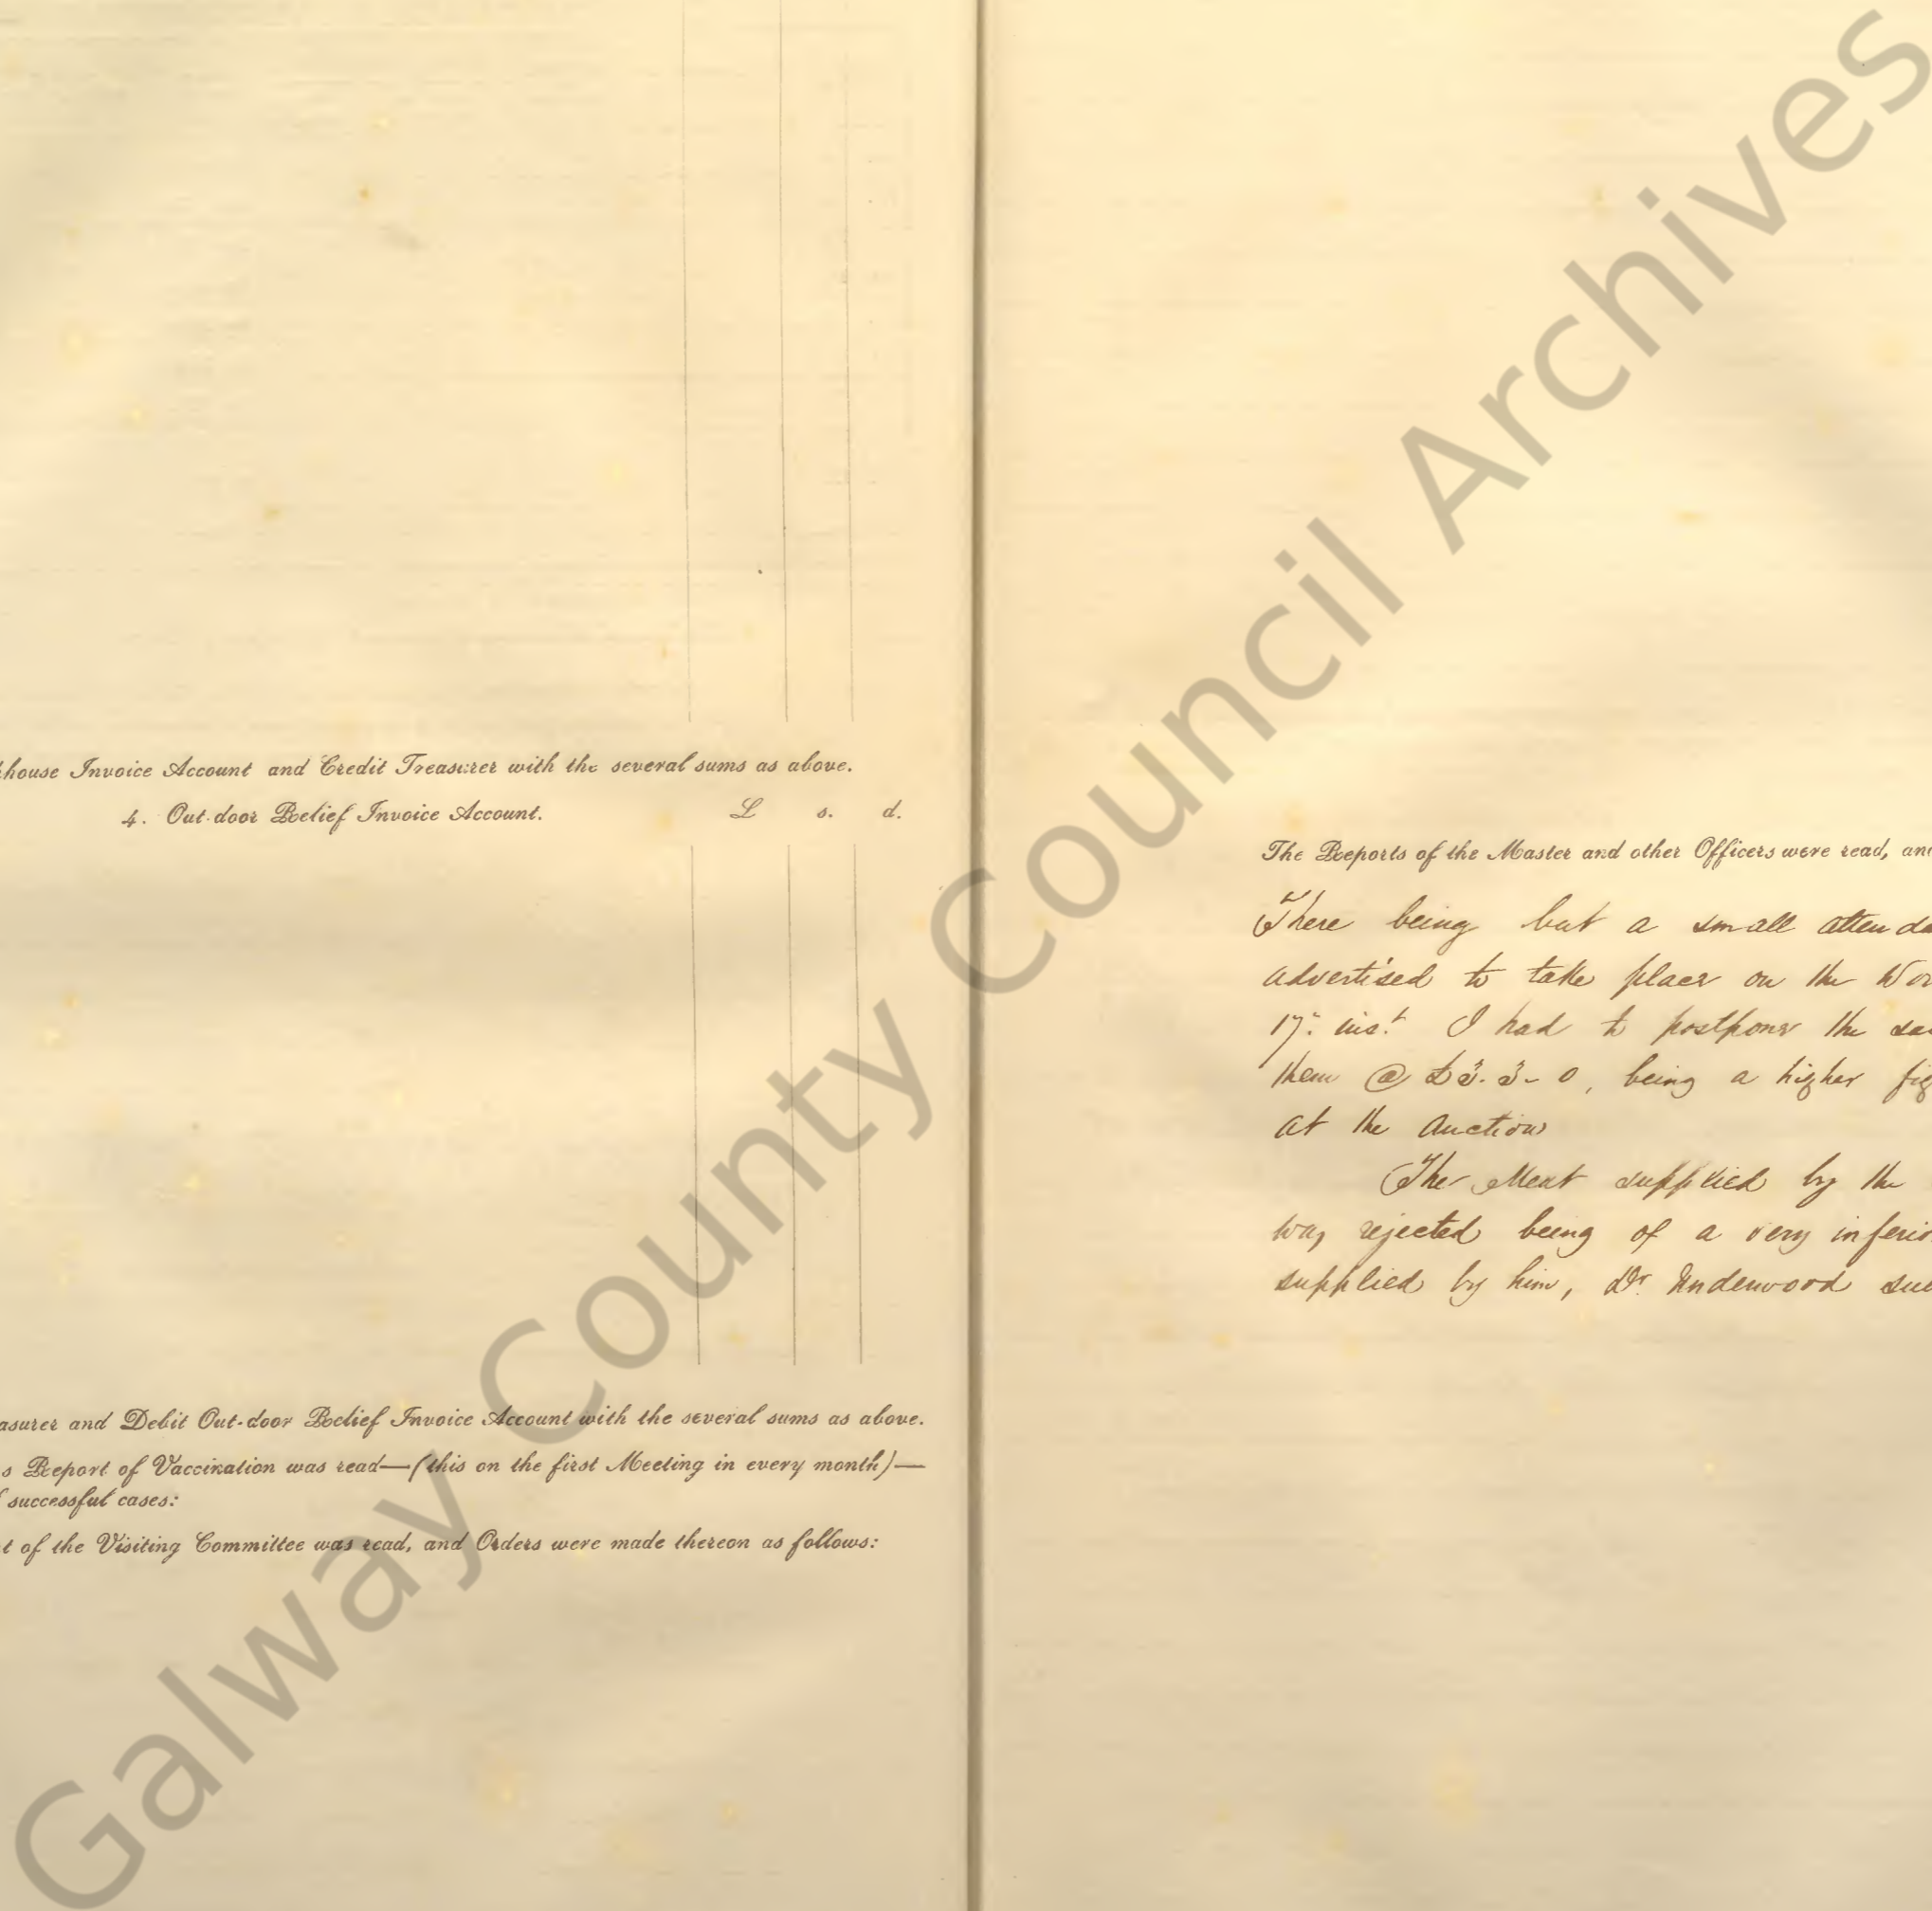 house Invoice Account and Credit Treasurer with the several sums as above.
4. Out-door Relief Invoice Account. £ s. d.
asurer and Debit Out-door Relief Invoice Account with the several sums as above.
s Report of Vaccination was read—(this on the first Meeting in every month)—
successful cases:
t of the Visiting Committee was read, and Orders were made thereon as follows:
The Reports of the Master and other Officers were read, and
There being but a small attenda
advertised to take place on the Wor
17th inst I had to postpone the sa
them @ £3-3-0, being a higher fig
at the Auction
The Meat supplied by the
was rejected being of a very inferio
supplied by him, Dr Underwood
Galway County Council Archives